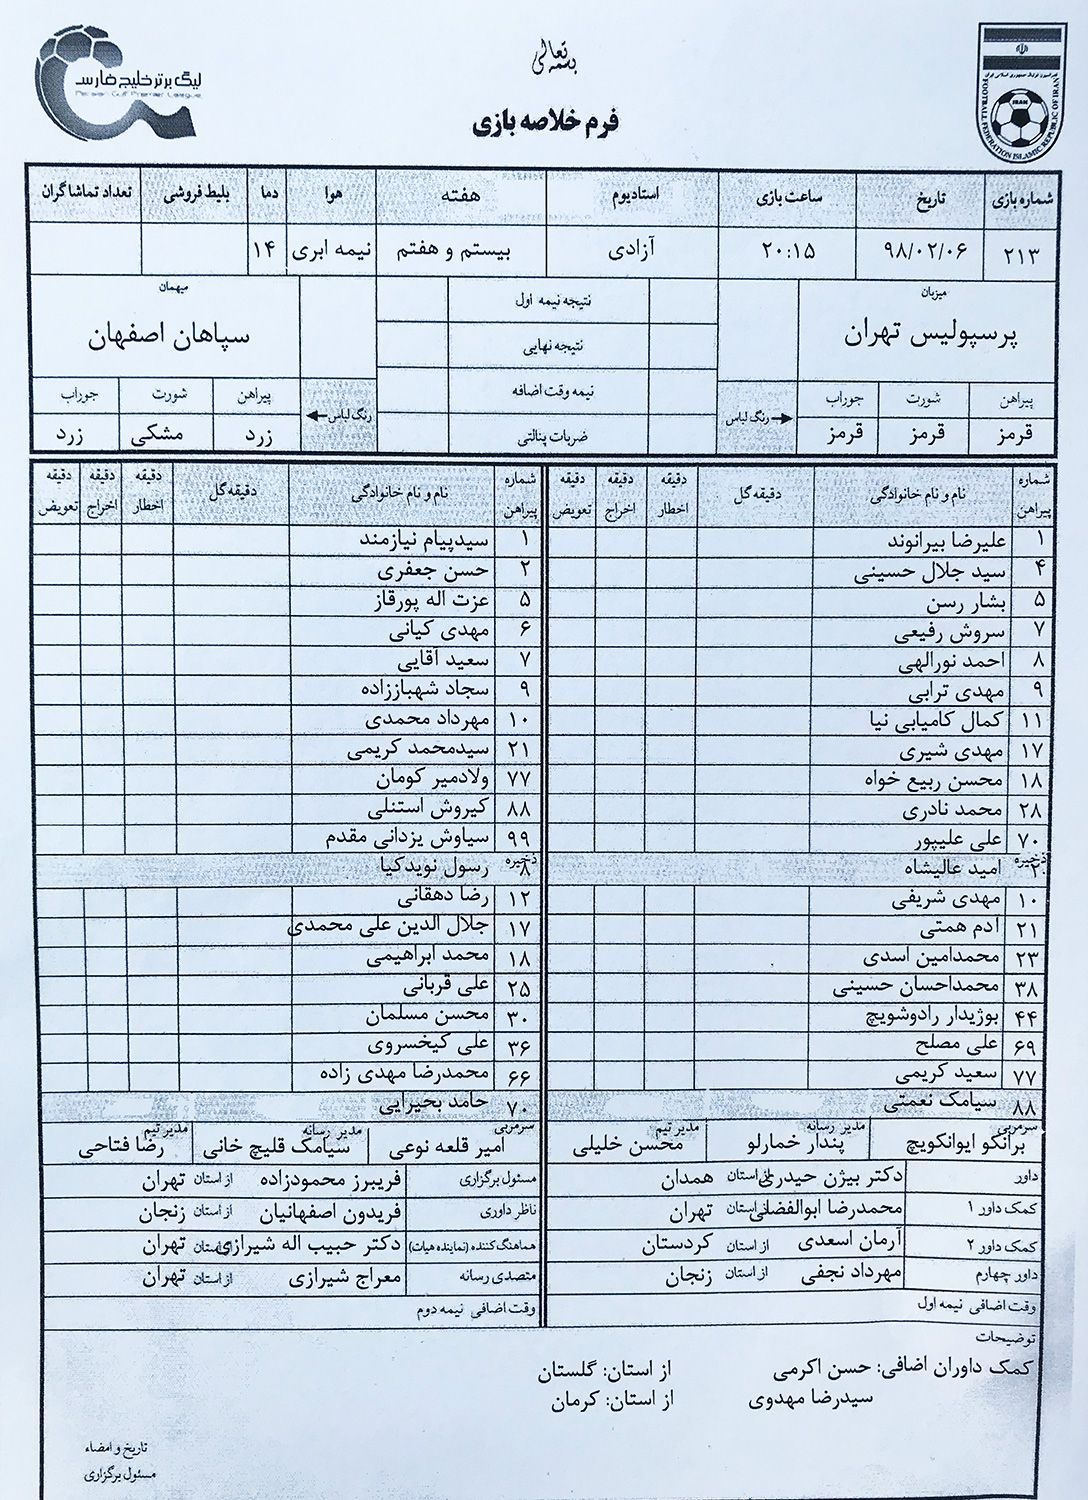 بسمه تعالی
لیگ برتر خلیج فارس
Persian Gulf Premier League
IRAN
FOOTBALL FEDERATION ISLAMIC REPUBLIC OF IRAN
فرم خلاصه بازی
شماره بازی تاریخ ساعت بازی استادیوم هفته هوا دما بلیط فروشی تعداد تماشاگران
۲۱۳ ۹۸/۰۲/۰۶ ۲۰:۱۵ آزادی بیستم و هفتم نیمه ابری ۱۴
میزبان نتیجه نیمه اول میهمان
پرسپولیس تهران نتیجه نهایی سپاهان اصفهان
پیراهن شورت جوراب رنگ لباس نیمه وقت اضافه رنگ لباس پیراهن شورت جوراب
قرمز قرمز قرمز ضربات پنالتی زرد مشکی زرد
شماره پیراهن نام و نام خانوادگی دقیقه گل دقیقه اخطار دقیقه اخراج دقیقه تعویض شماره پیراهن نام و نام خانوادگی دقیقه گل دقیقه اخطار دقیقه اخراج دقیقه تعویض
۱ علیرضا بیرانوند ۱ سیدپیام نیازمند
۴ سید جلال حسینی ۲ حسن جعفری
۵ بشار رسن ۵ عزت اله پورقاز
۷ سروش رفیعی ۶ مهدی کیانی
۸ احمد نورالهی ۷ سعید آقایی
۹ مهدی ترابی ۹ سجاد شهباززاده
۱۱ کمال کامیابی نیا ۱۰ مهرداد محمدی
۱۷ مهدی شیری ۲۱ سیدمحمد کریمی
۱۸ محسن ربیع خواه ۷۷ ولادمیر کومان
۲۸ محمد نادری ۸۸ کیروش استنلی
۷۰ علی علیپور ۹۹ سیاوش یزدانی مقدم
ذخیره ۲ امید عالیشاه ذخیره ۸ رسول نویدکیا
۱۰ مهدی شریفی ۱۲ رضا دهقانی
۲۱ ادم همتی ۱۷ جلال الدین علی محمدی
۲۳ محمدامین اسدی ۱۸ محمد ابراهیمی
۳۸ محمداحسان حسینی ۲۵ علی قربانی
۴۴ بوژیدار رادوشویچ ۳۰ محسن مسلمان
۶۹ علی مصلح ۳۶ علی کیخسروی
۷۷ سعید کریمی ۶۶ محمدرضا مهدی زاده
۸۸ سیامک نعمتی ۷۰ حامد بحیرایی
سرمربی برانکو ایوانکویچ مدیر رسانه پندار خمارلو مدیر تیم محسن خلیلی سرمربی امیر قلعه نوعی مدیر رسانه سیامک قلیچ خانی مدیر تیم رضا فتاحی
داور دکتر بیژن حیدری از استان همدان مسئول برگزاری فریبرز محمودزاده از استان تهران
کمک داور ۱ محمدرضا ابوالفضلی از استان تهران ناظر داوری فریدون اصفهانیان از استان زنجان
کمک داور ۲ آرمان اسعدی از استان کردستان هماهنگ کننده (نماینده هیات) دکتر حبیب اله شیرازی از استان تهران
داور چهارم مهرداد نجفی از استان زنجان متصدی رسانه معراج شیرازی از استان تهران
وقت اضافی نیمه اول وقت اضافی نیمه دوم
توضیحات
کمک داوران اضافی: حسن اکرمی از استان: گلستان
سیدرضا مهدوی از استان: کرمان
تاریخ و امضاء
مسئول برگزاری